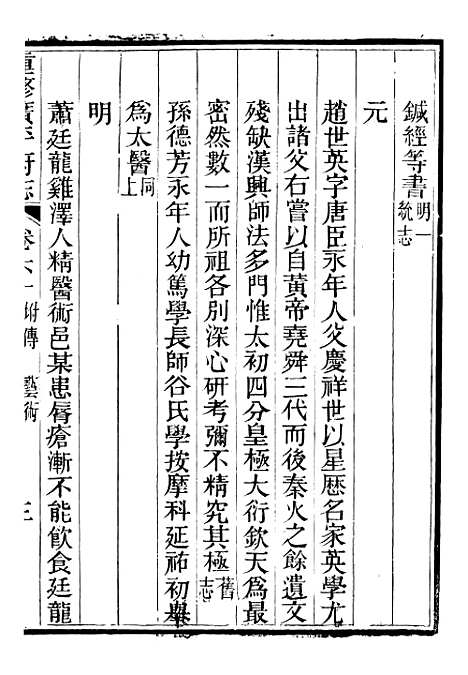 鍼經等書明一統志
元
趙世英字唐臣永年人父慶祥世以星歷名家英學尤
出諸父右嘗以自黃帝堯舜三代而後秦火之餘遺文
殘缺漢興師法多門惟太初四分皇極大衍欽天為最
密然數一而所祖各別深心研考彌不精究其極舊志
孫德芳永年人幼篤學長師谷氏學按摩科延祐初舉
為太醫同上
明
蕭廷龍雞澤人精醫術邑某患脣瘡漸不能飲食廷龍
重修廣平府志 卷六十 附傳 藝術 三